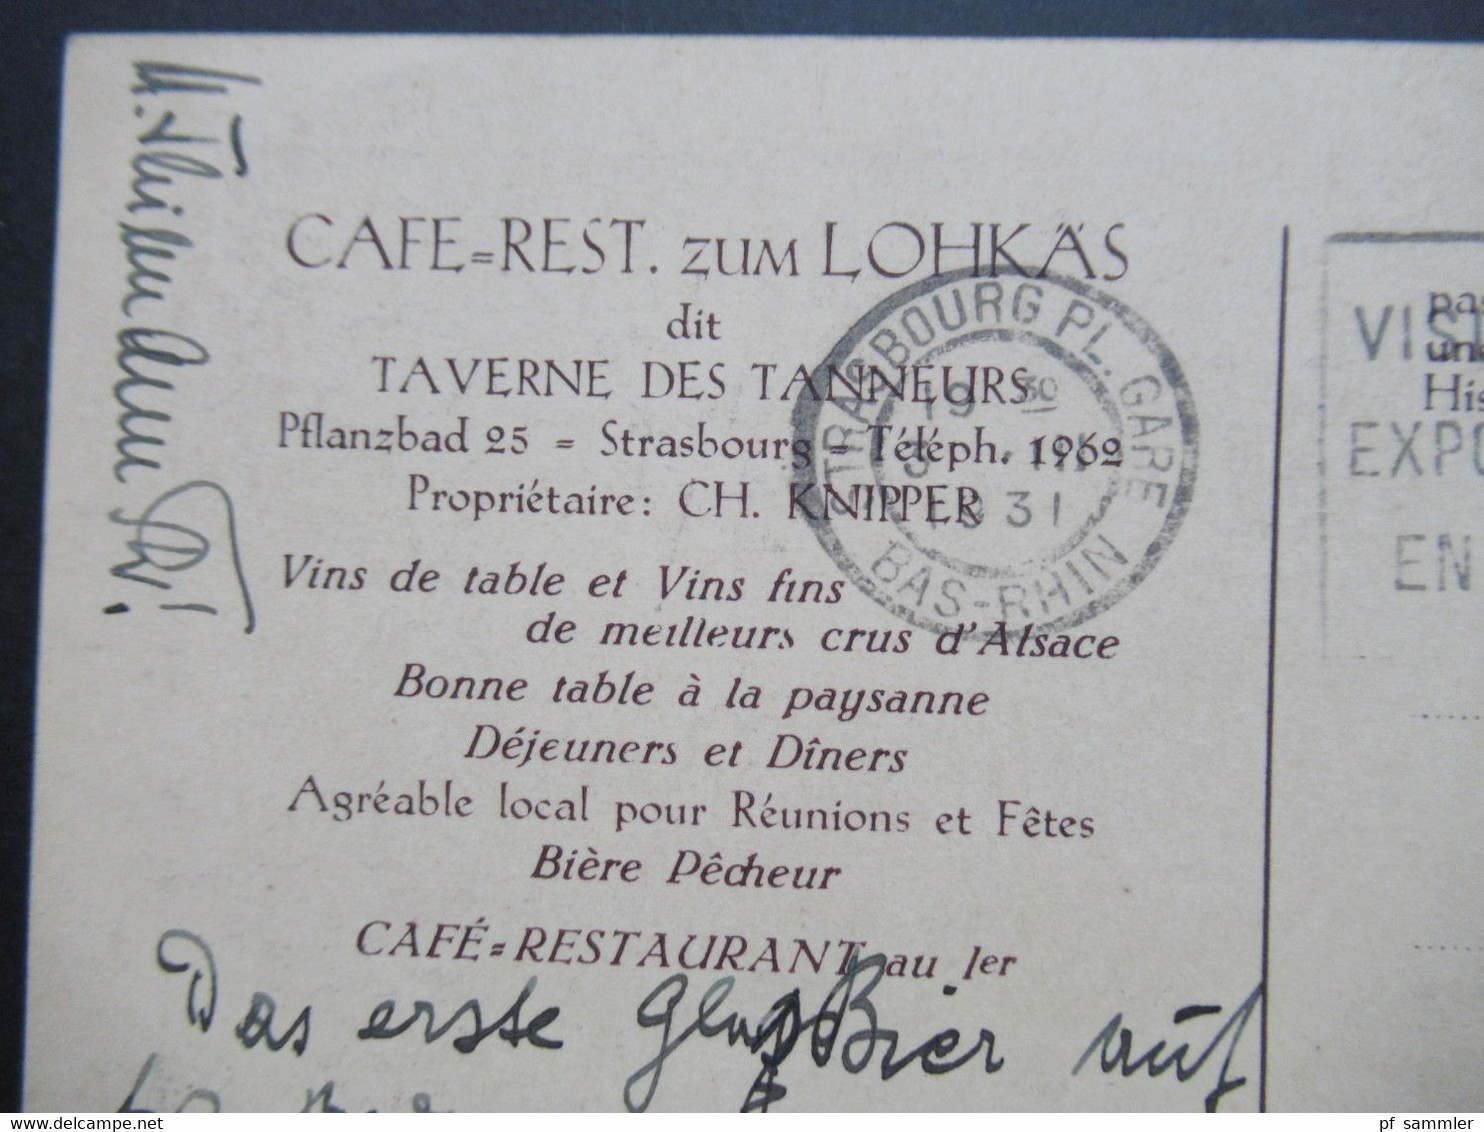 CAFE=REST. ZUM LOHKÄS
dit
TAVERNE DES TANNEURS
Pflanzbad 25 = Strasbourg = Téléph. 1962
Propriétaire: CH. KNIPPER
Vins de table et Vins fins
de meilleurs crus d'Alsace
Bonne table à la paysanne
Déjeuners et Dîners
Agréable local pour Réunions et Fêtes
Bière Pêcheur
CAFÉ=RESTAURANT au 1er
Das erste Glas Bier auf
STRASBOURG PL. GARE
19 30
1931
BAS-RHIN
VIS
EXPO
EN
pas
une
His
pf_sammler